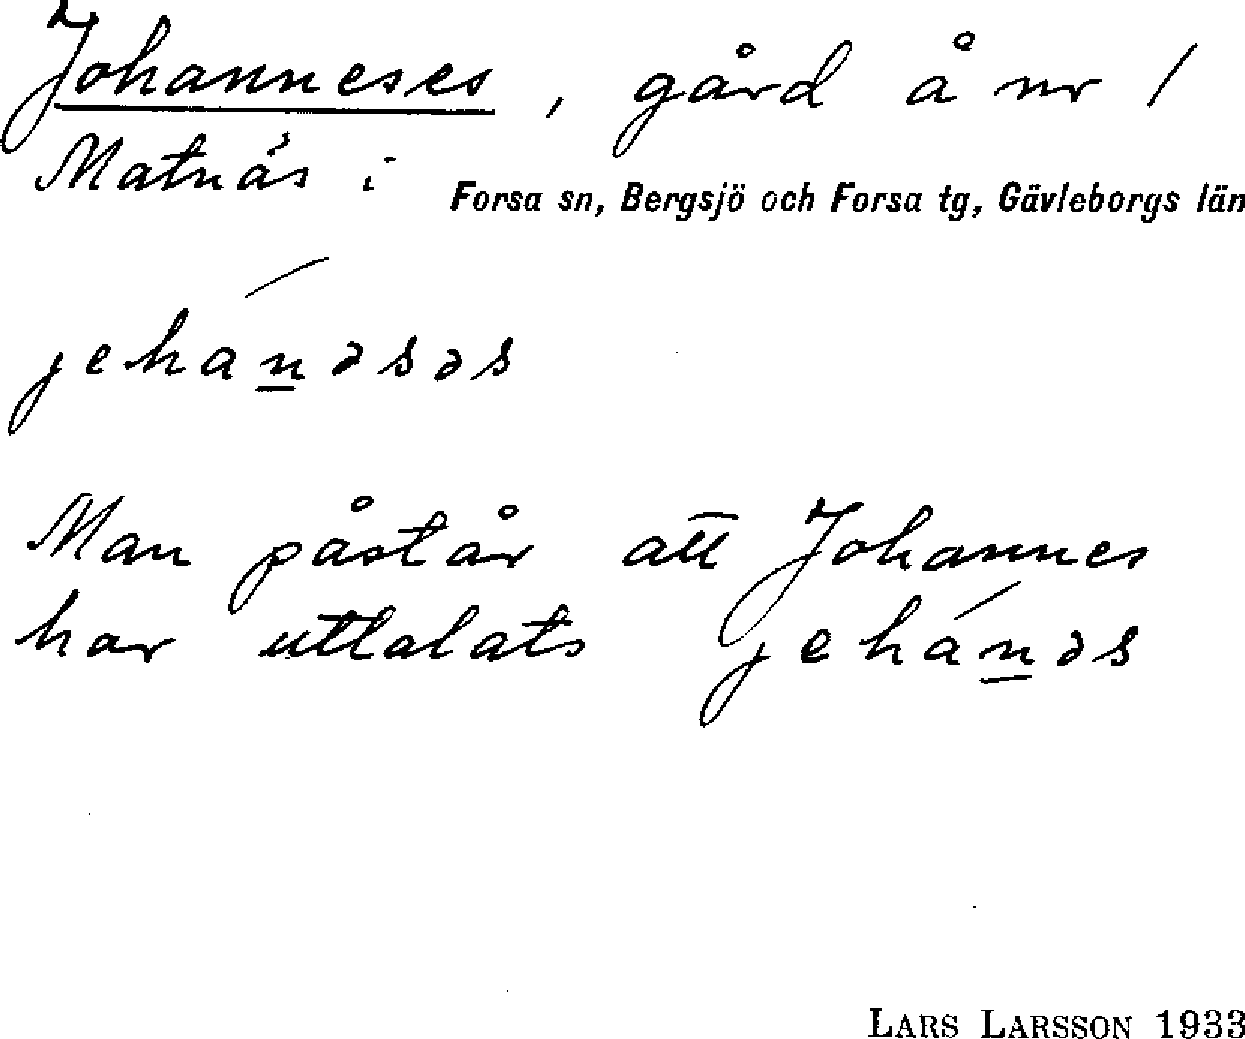 Johanneses, gård å nr 1
Matnäs i Forsa sn, Bergsjö och Forsa tg, Gävleborgs län
jehánəsəs
Man påstår att Johannes
har uttalats jehánəs
LARS LARSSON 1933